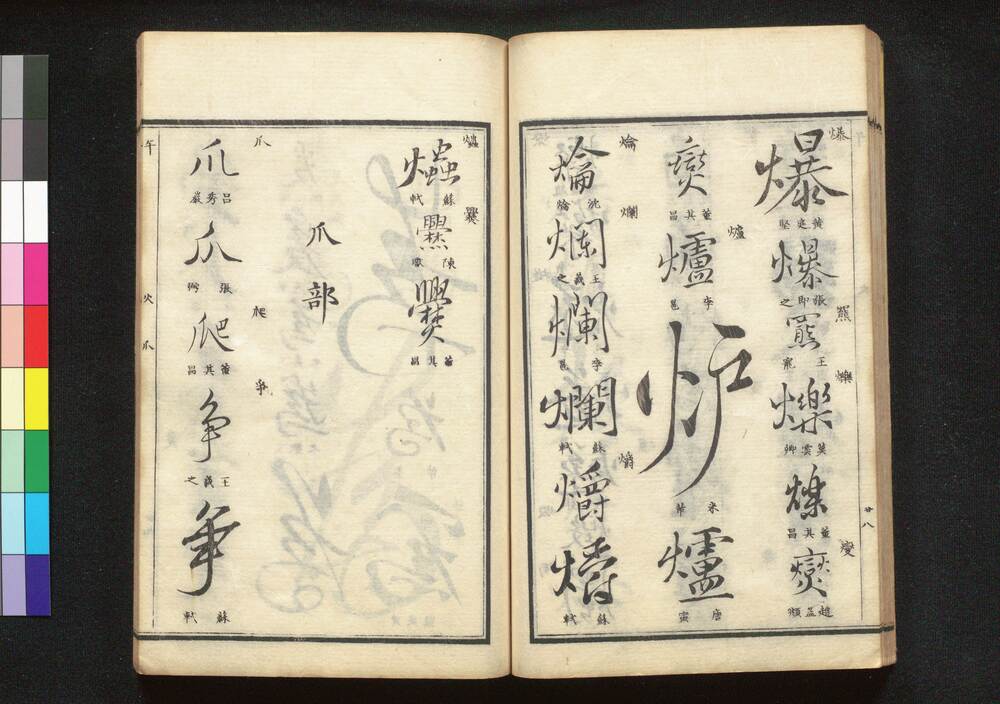 爆
爆
黄庭堅
爆
張即之
羆
羆
王寵
爍
爍
莫雲卿
爍
董其昌
燮
趙孟頫
廿八
燮
董其昌
爐
爐
李邕
炉
米芾
爐
唐寅
爚
爚
爛
爛
王羲之
爛
李邕
爛
蘇軾
爝
爝
爝
蘇軾
蘇軾
爨
爨
陳
爨
董其昌
爪部
爪
爪
呂秀巖
爪
張
爬
爬
董其昌
爭
争
王羲之
爭
蘇軾
午
火爪